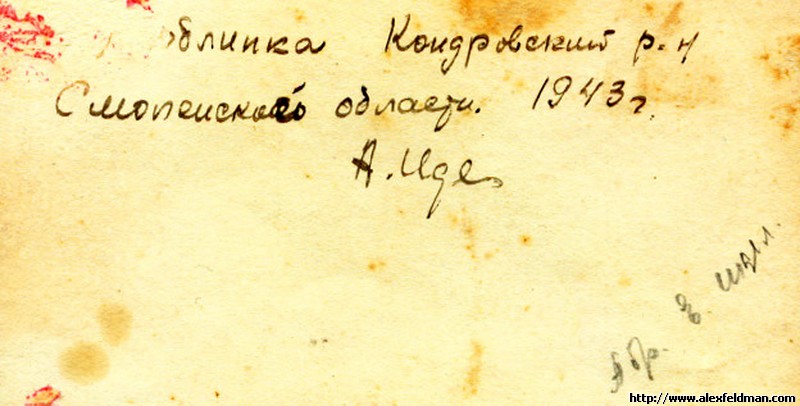 облинка Кондровский р-н
Смоленской области. 1943 г.
А. Иде
http://www.alexfeldman.com